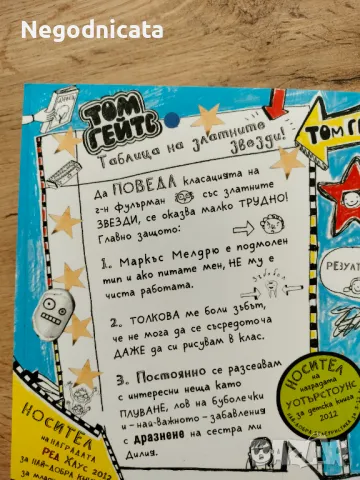 Negodnicata
ТОМ ГЕЙТС
Таблица на златните звезди!
Да ПОВЕДА класацията на
г-н фулърман със златните
ЗВЕЗДИ, се оказва малко ТРУДНО!
Главно защото:
1. Маркъс Мелдрю е подмолен
тип и ако питате мен, НЕ му е
чиста работата.
2. ТОЛКОВА ме боли зъбът,
че не мога да се съсредоточа
ДАЖЕ да си рисувам в клас.
3. Постоянно се разсейвам
с интересни неща като
ПЛУВАНЕ, лов на буболечки
и – най-важното – забавления
с дразнене на сестра ми
Дилия.
ТОМ ГЕ
РЕЗУЛТ
НОСИТЕЛ
на
наградата
УОТЪРСТОУНС
за детска книга
2012
НОСИТЕЛ
НА НАГРАДАТА
РЕД ХАУС 2012
ЗА НАЙ-ДОБРА КН